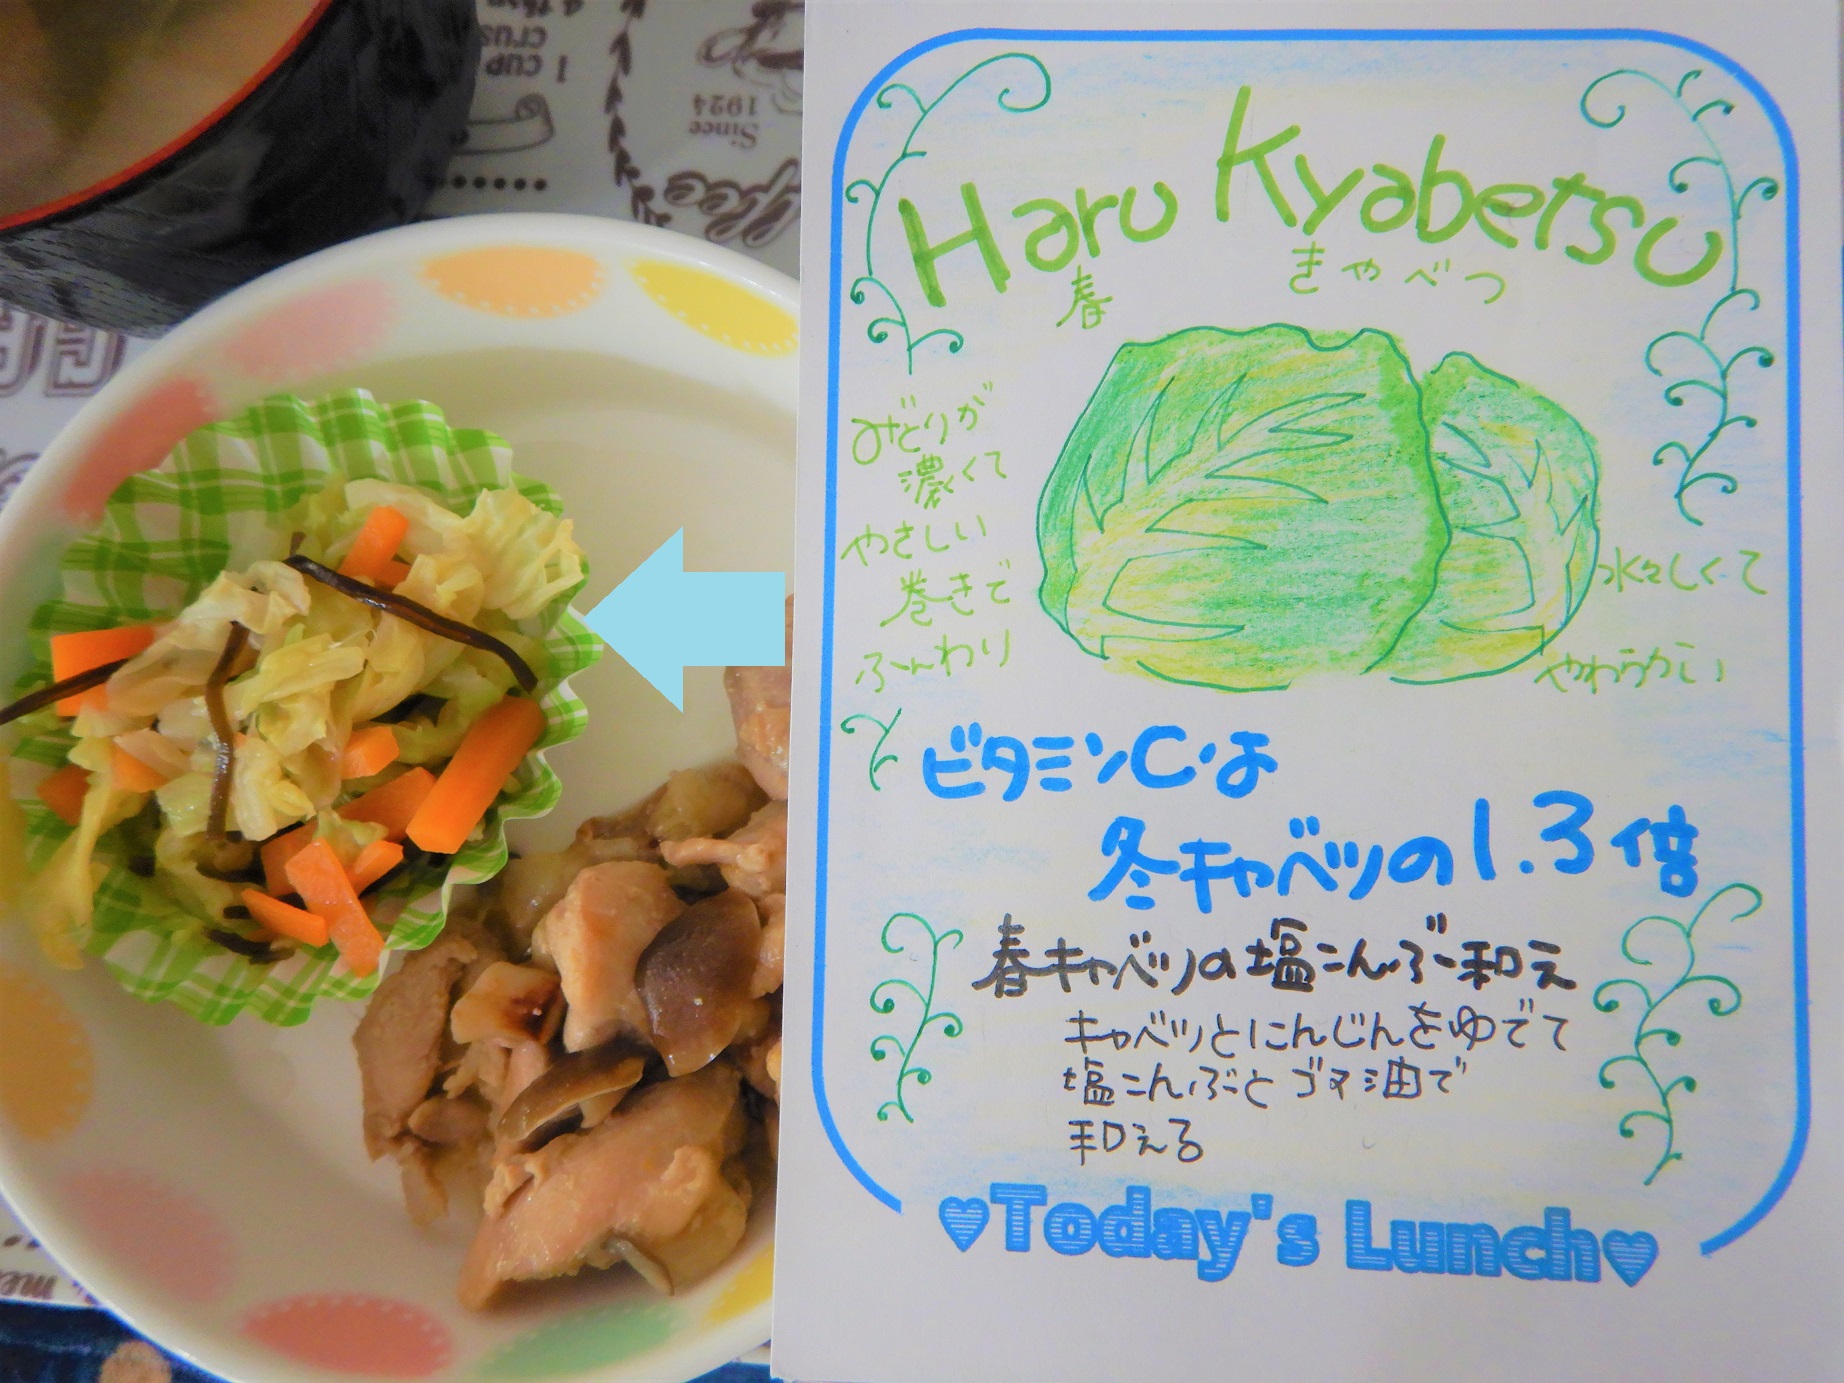 1 CUP
crus
Since
1924
Haru Kyabetsu
春 きゃべつ
みどりが
濃くて
やさしい
巻きで
ふんわり
水々しくて
やわらかい
ビタミンCは
冬キャベツの1.3倍
春キャベツの塩こんぶ和え
キャベツとにんじんをゆでて
塩こんぶとゴマ油で
和える
♥Today's Lunch♥